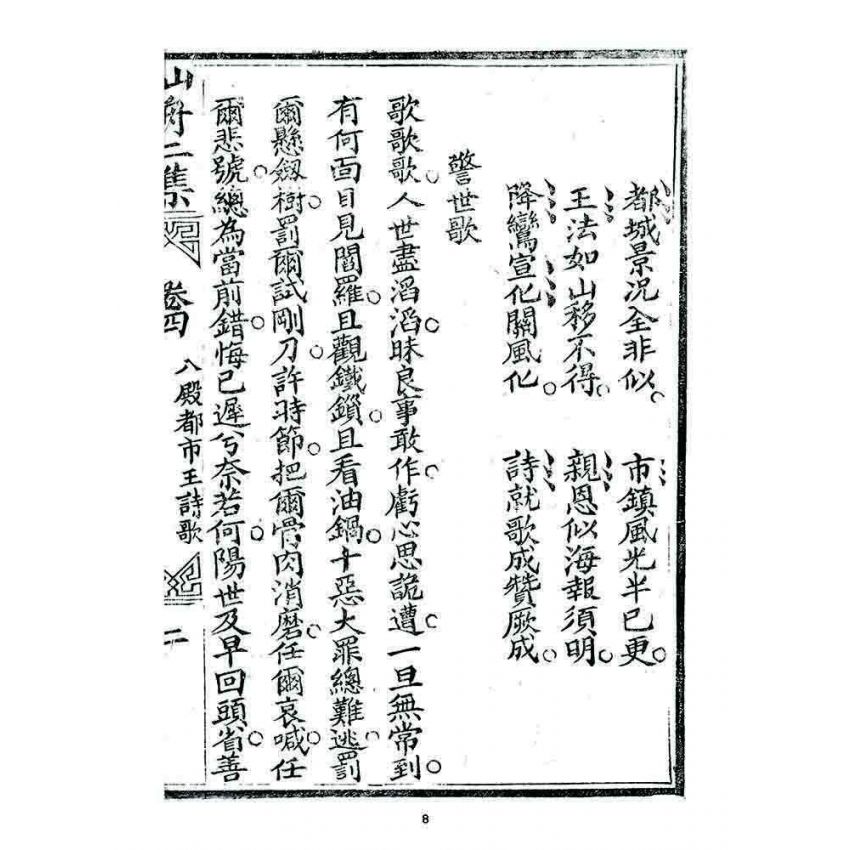 都城景況全非似。　市鎮風光半已更。
王法如山移不得。　親恩似海報須明。
降鸞宣化關風化。　詩就歌成贊厥成。
警世歌
歌歌歌。人世盡滔滔。昧良事敢作。虧心思詭遭。一旦無常到。
有何面目見閻羅。且觀鐵鎖。且看油鍋。十惡大罪總難逃。罰
爾懸劔樹。罰爾試剛刀。許時節。把爾骨肉消磨。任爾哀喊。任
爾悲號。總為當前錯。悔已遲兮奈若何。陽世及早回頭省。善
山府二集
卷四
八殿都市王詩歌
二
8